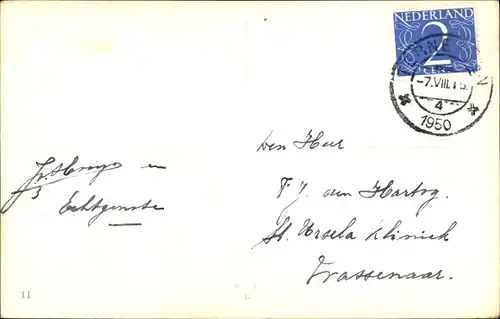 NEDERLAND
2
CENT
-7.VIII.15.
4
1950
en
Echtgenote
Den Heer
F. J. den Hartog.
St. Ursula Kliniek
Wassenaar.
11